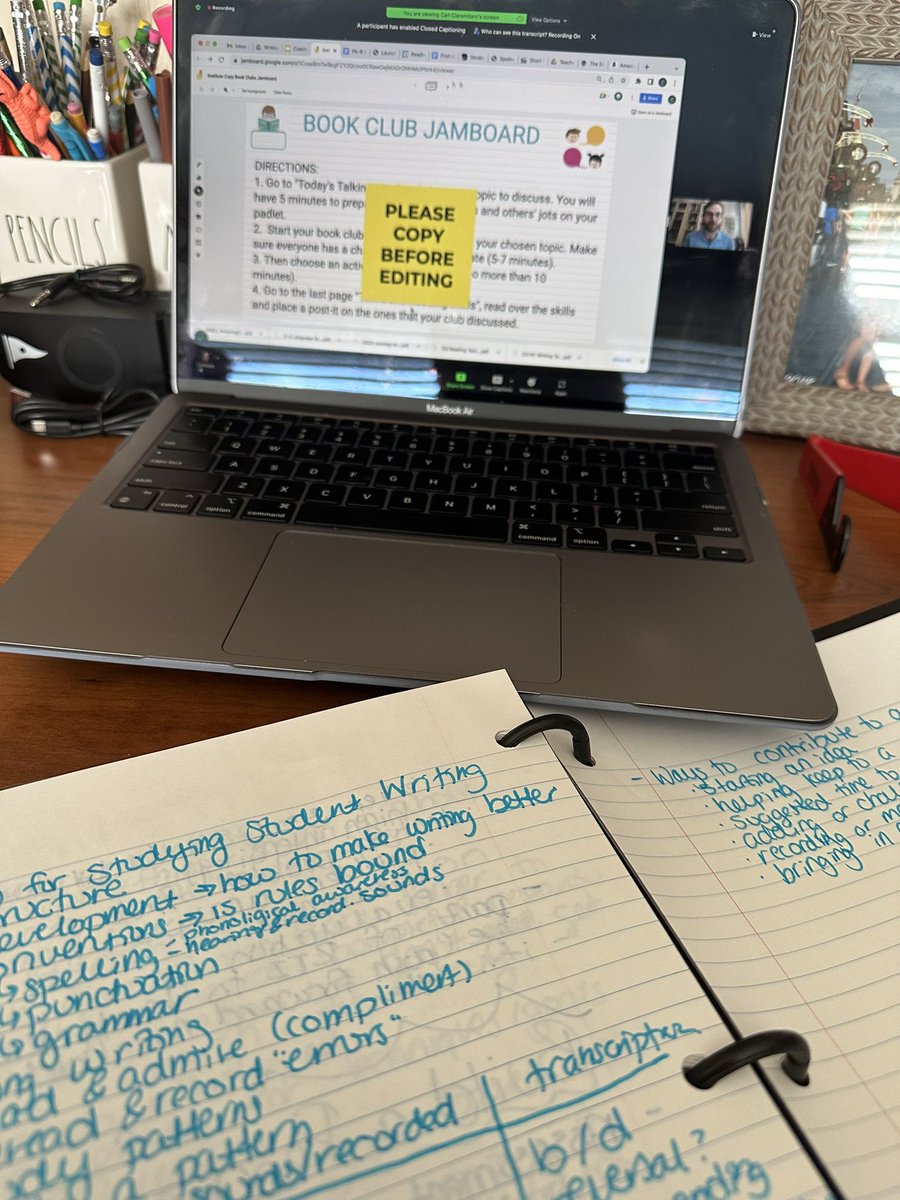 Recording
You are viewing Carl Ciaramitaro's screen
View Options
A participant has enabled Closed Captioning
Who can see this transcript? Recording On
View
Institute Copy Book Clubs Jamboard
Share
BOOK CLUB JAMBOARD
DIRECTIONS:
1. Go to "Today's Talkin opic to discuss. You will
have 5 minutes to prep s and others' jots on your
padlet.
2. Start your book club your chosen topic. Make
sure everyone has a ch te (5-7 minutes).
3. Then choose an acti o more than 10
minutes).
4. Go to the last page ls", read over the skills
and place a post-it on the ones that your club discussed.
PLEASE
COPY
BEFORE
EDITING
PENCILS
MacBook Air
Q W E R T Y U I O P
A S D F G H J K L
shift Z X C V B N M
return
shift
fn control option command command option
for Studying Student Writing
ructure
evelopment → how to make writing better
onventions → is rules bound
spelling = phonoligical awareness
hearing & record sounds
punctuation
grammar
ng writing
ad & admire (compliment)
read & record "errors"
udy patterns
a pattern
sounds/recorded
b/d
eversal?
- Ways to contribute to a
· starting an idea
· helping keep to a
· suggested time to
· adding or chal
· recording or m
· bringing in